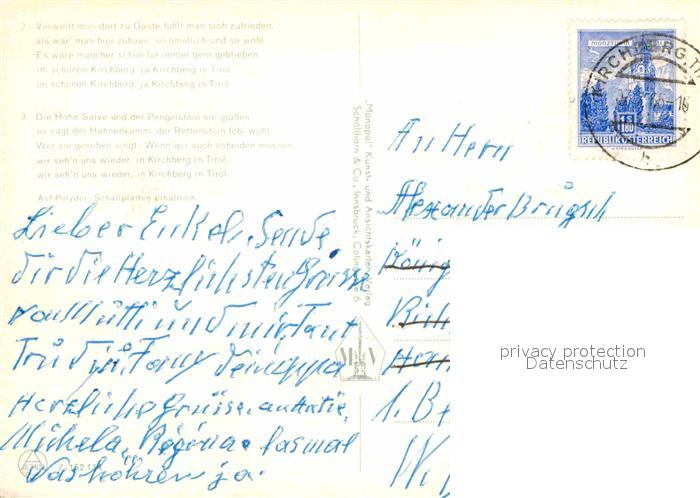 2. Verweilt man dort zu Gaste fühlt man sich zufrieden,
als wär' man hier zuhaus' so gmütlich und so wohl.
Es wäre mancher schon für immer gern geblieben,
im schönen Kirchberg, ja Kirchberg in Tirol,
im schönen Kirchberg, ja Kirchberg in Tirol.
3. Die Hohe Salve und der Pengelstein sie grüßen,
es sagt der Hahnenkamm, der Rettenstein leb' wohl.
Wer sie gesehen singt: Wenn wir auch scheiden müssen,
wir seh'n uns wieder, in Kirchberg in Tirol,
wir seh'n uns wieder, in Kirchberg in Tirol.
Auf Polydor Schallplatten erhältlich
Lieber Enkel. Sende
dir die Herzlichsten Grüsse
von Mutti und mir, Tant
Trudi,
Herzliche Grüsse an Katie,
Michela, Regina lasmal
was hören ja.
Z 152 11
„Monopol" Kunst- und Ansichtskarten-Verlag
Schöllhorn & Co., Innsbruck, 6
M V
KIRCHBERG, TI
S 1.80
REPUBLIK ÖSTERREICH
An Herrn
Alexander Brügsch
König
1. Be
W.
privacy protection
Datenschutz